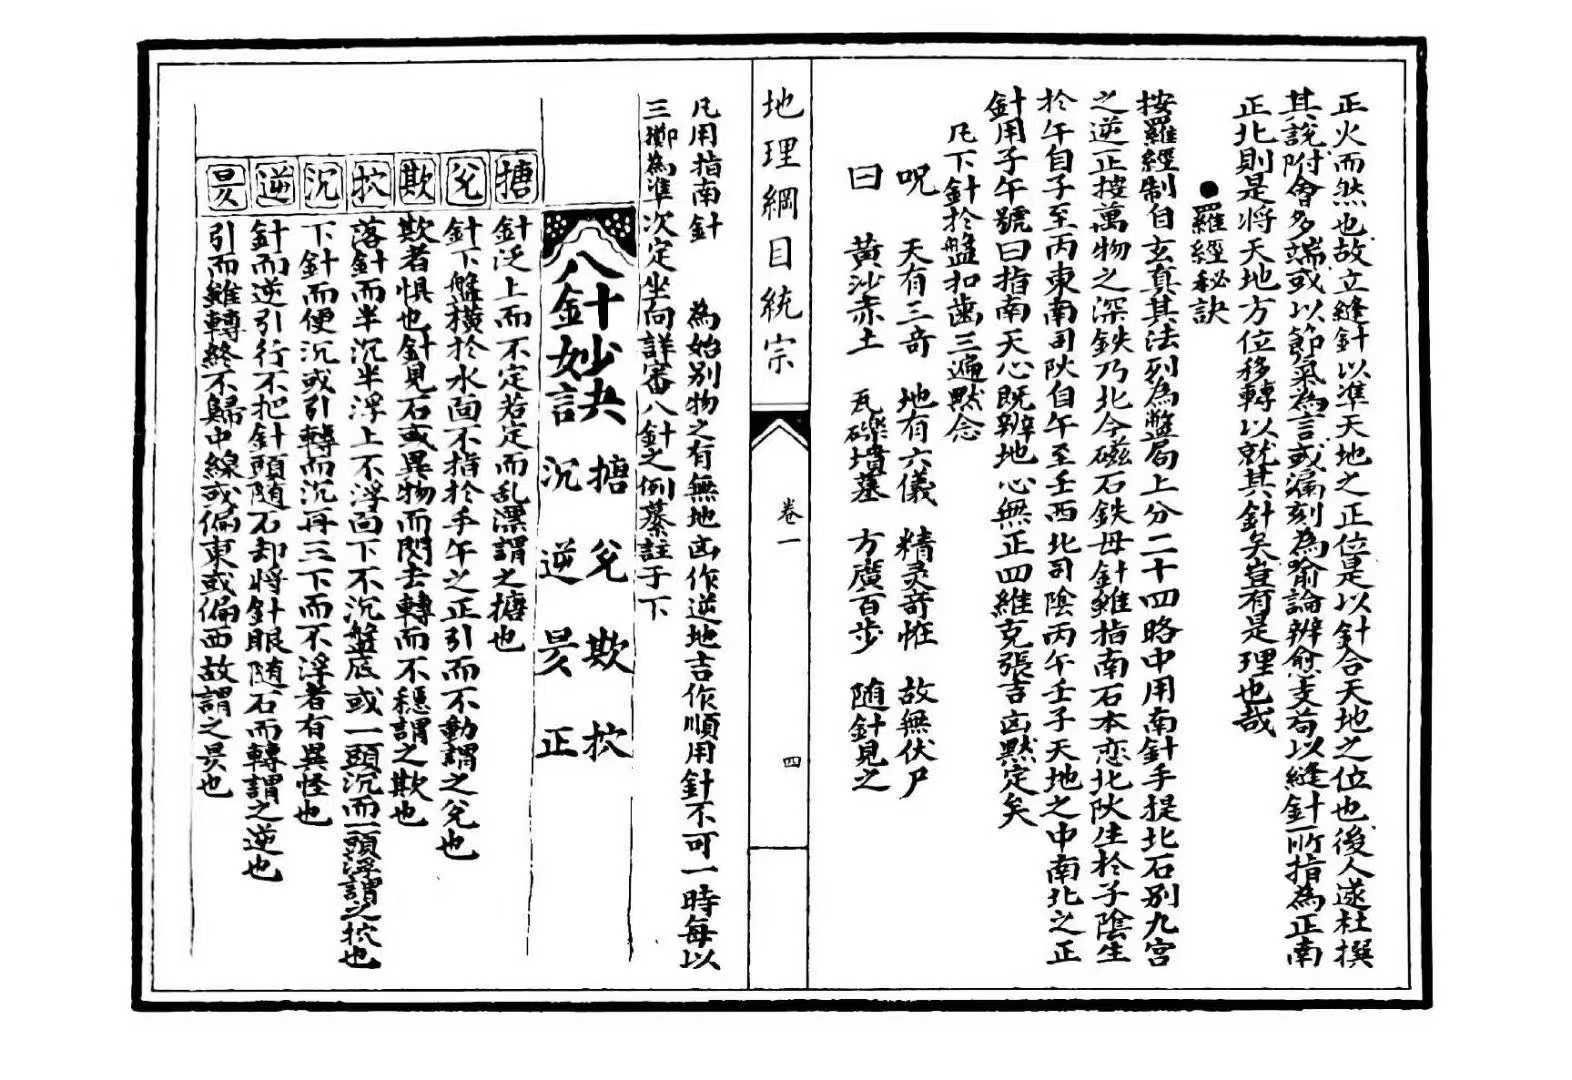 正火而然也故立縫針以準天地之正位是以針合天地之位也後人遂杜撰
其說附會多端或以節氣為言或漏刻為喻論辨愈支苟以縫針所指為正南
正北則是將天地方位移轉以就其針矣豈有是理也哉
●羅經秘訣
按羅經制自玄真其法列為盤局上分二十四路中用南針手提北石別九宮
之逆正按萬物之深鉄乃北令磁石鉄母針雖指南石本恋北阦生於子陰生
於午自子至丙東南司阦自午至壬西北司陰丙午壬子天地之中南北之正
針用子午號曰指南天心既辨地心無正四維克張吉凶黙定矣
凡下針於盤扣齒三遍黙念
呪 天有三竒 地有六儀 精灵竒恠 故無伏尸
曰 黃沙赤土 瓦礫墳墓 方廣百步 随針見之
地理綱目統宗
卷一
四
凡用指南針 為始別物之有無地凶作逆地吉作順用針不可一時每以
三擲為準次定坐向詳審八針之例纂註于下
八針妙訣
搪 兊 欺 㧒
沉 逆 㫕 正
搪 針泛上而不定若定而乱漂謂之搪也
兊 針下盤橫於水面不指於子午之正引而不動謂之兊也
欺 欺者惧也針見石或異物而閃去轉而不穩謂之欺也
㧒 落針而半沉半浮上不浮面下不沉盤底或一頭沉而一頭浮謂之㧒也
沉 下針而便沉或引轉而沉再三下而不浮者有異怪也
逆 針而逆引行不把針頭随石却將針眼随石而轉謂之逆也
㫕 引而雖轉終不歸中線或偏東或偏西故謂之㫕也